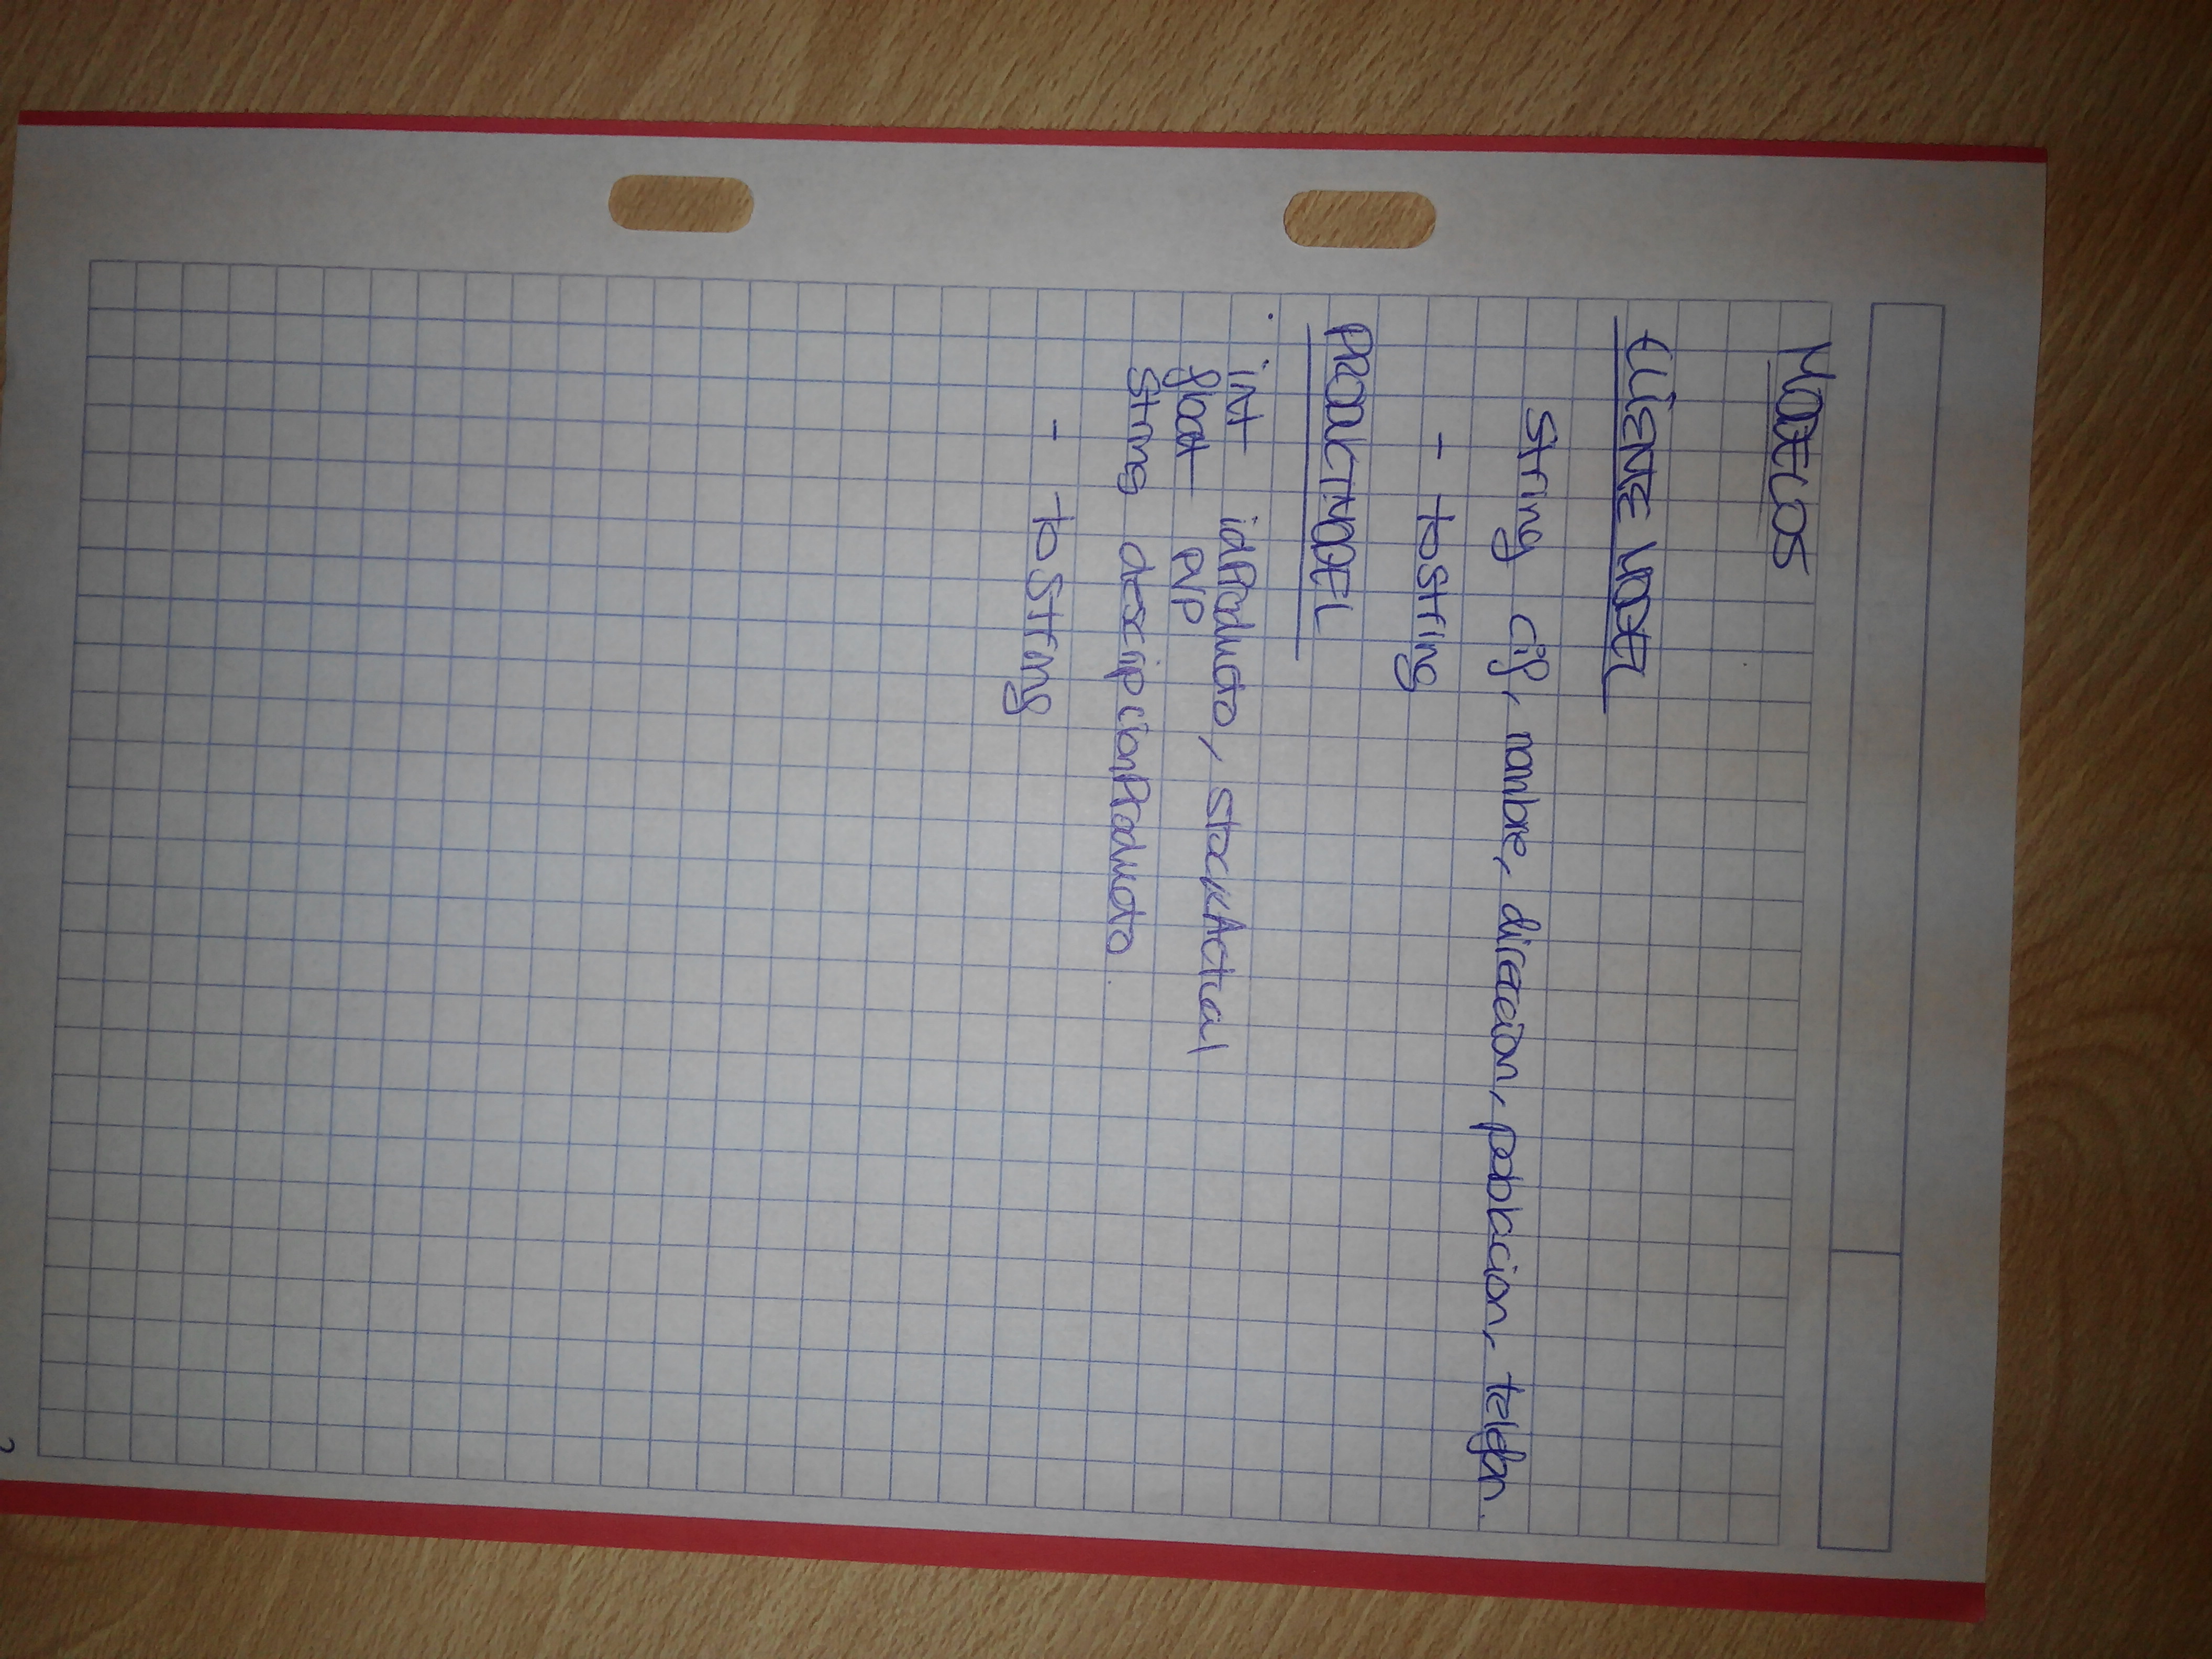 MODELOS
CLIENTE MODEL
String cif, nombre, direccion, poblacion, telefon.
- toString
PRODUCTMODEL
int idProducto, stockActual
float PVP
String descripcionProducto
- toString